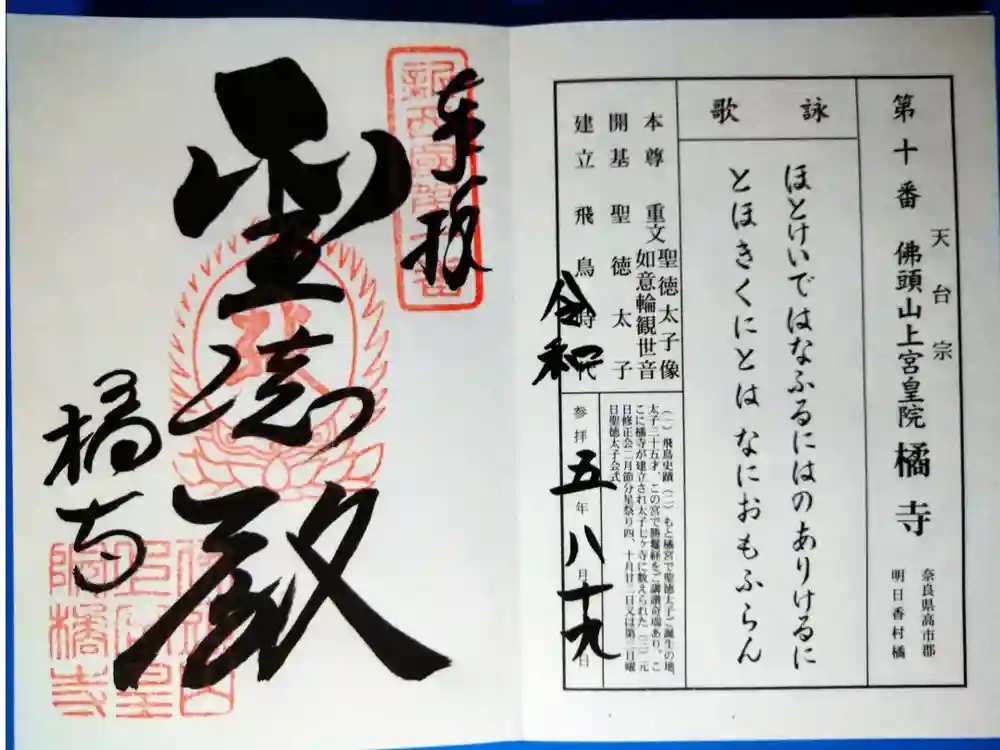 第十番 天台宗 佛頭山上宮皇院 橘寺
奈良県高市郡
明日香村橘
詠歌
ほとけいではなふるにはのありけるに
とほきくにとはなにおもふらん
本尊 重文 聖徳太子像
如意輪観世音
開基 聖徳太子
建立 飛鳥時代
(一)飛鳥史蹟(二)もと橘宮で聖徳太子ご誕生の地、
太子三十五才、この宮で勝鬘経をご講讃奇瑞あり、こ
こに橘寺が建立され太子七ヶ寺に数えられた(三)元
日修正会二月節分星祭り四、十月廿二日又は第三日曜
日聖徳太子会式
令和 参拝 五年 八月 十九日
奉拝
新西国第十番
聖徳殿
橘寺
佛頭山
上宮皇
院橘寺